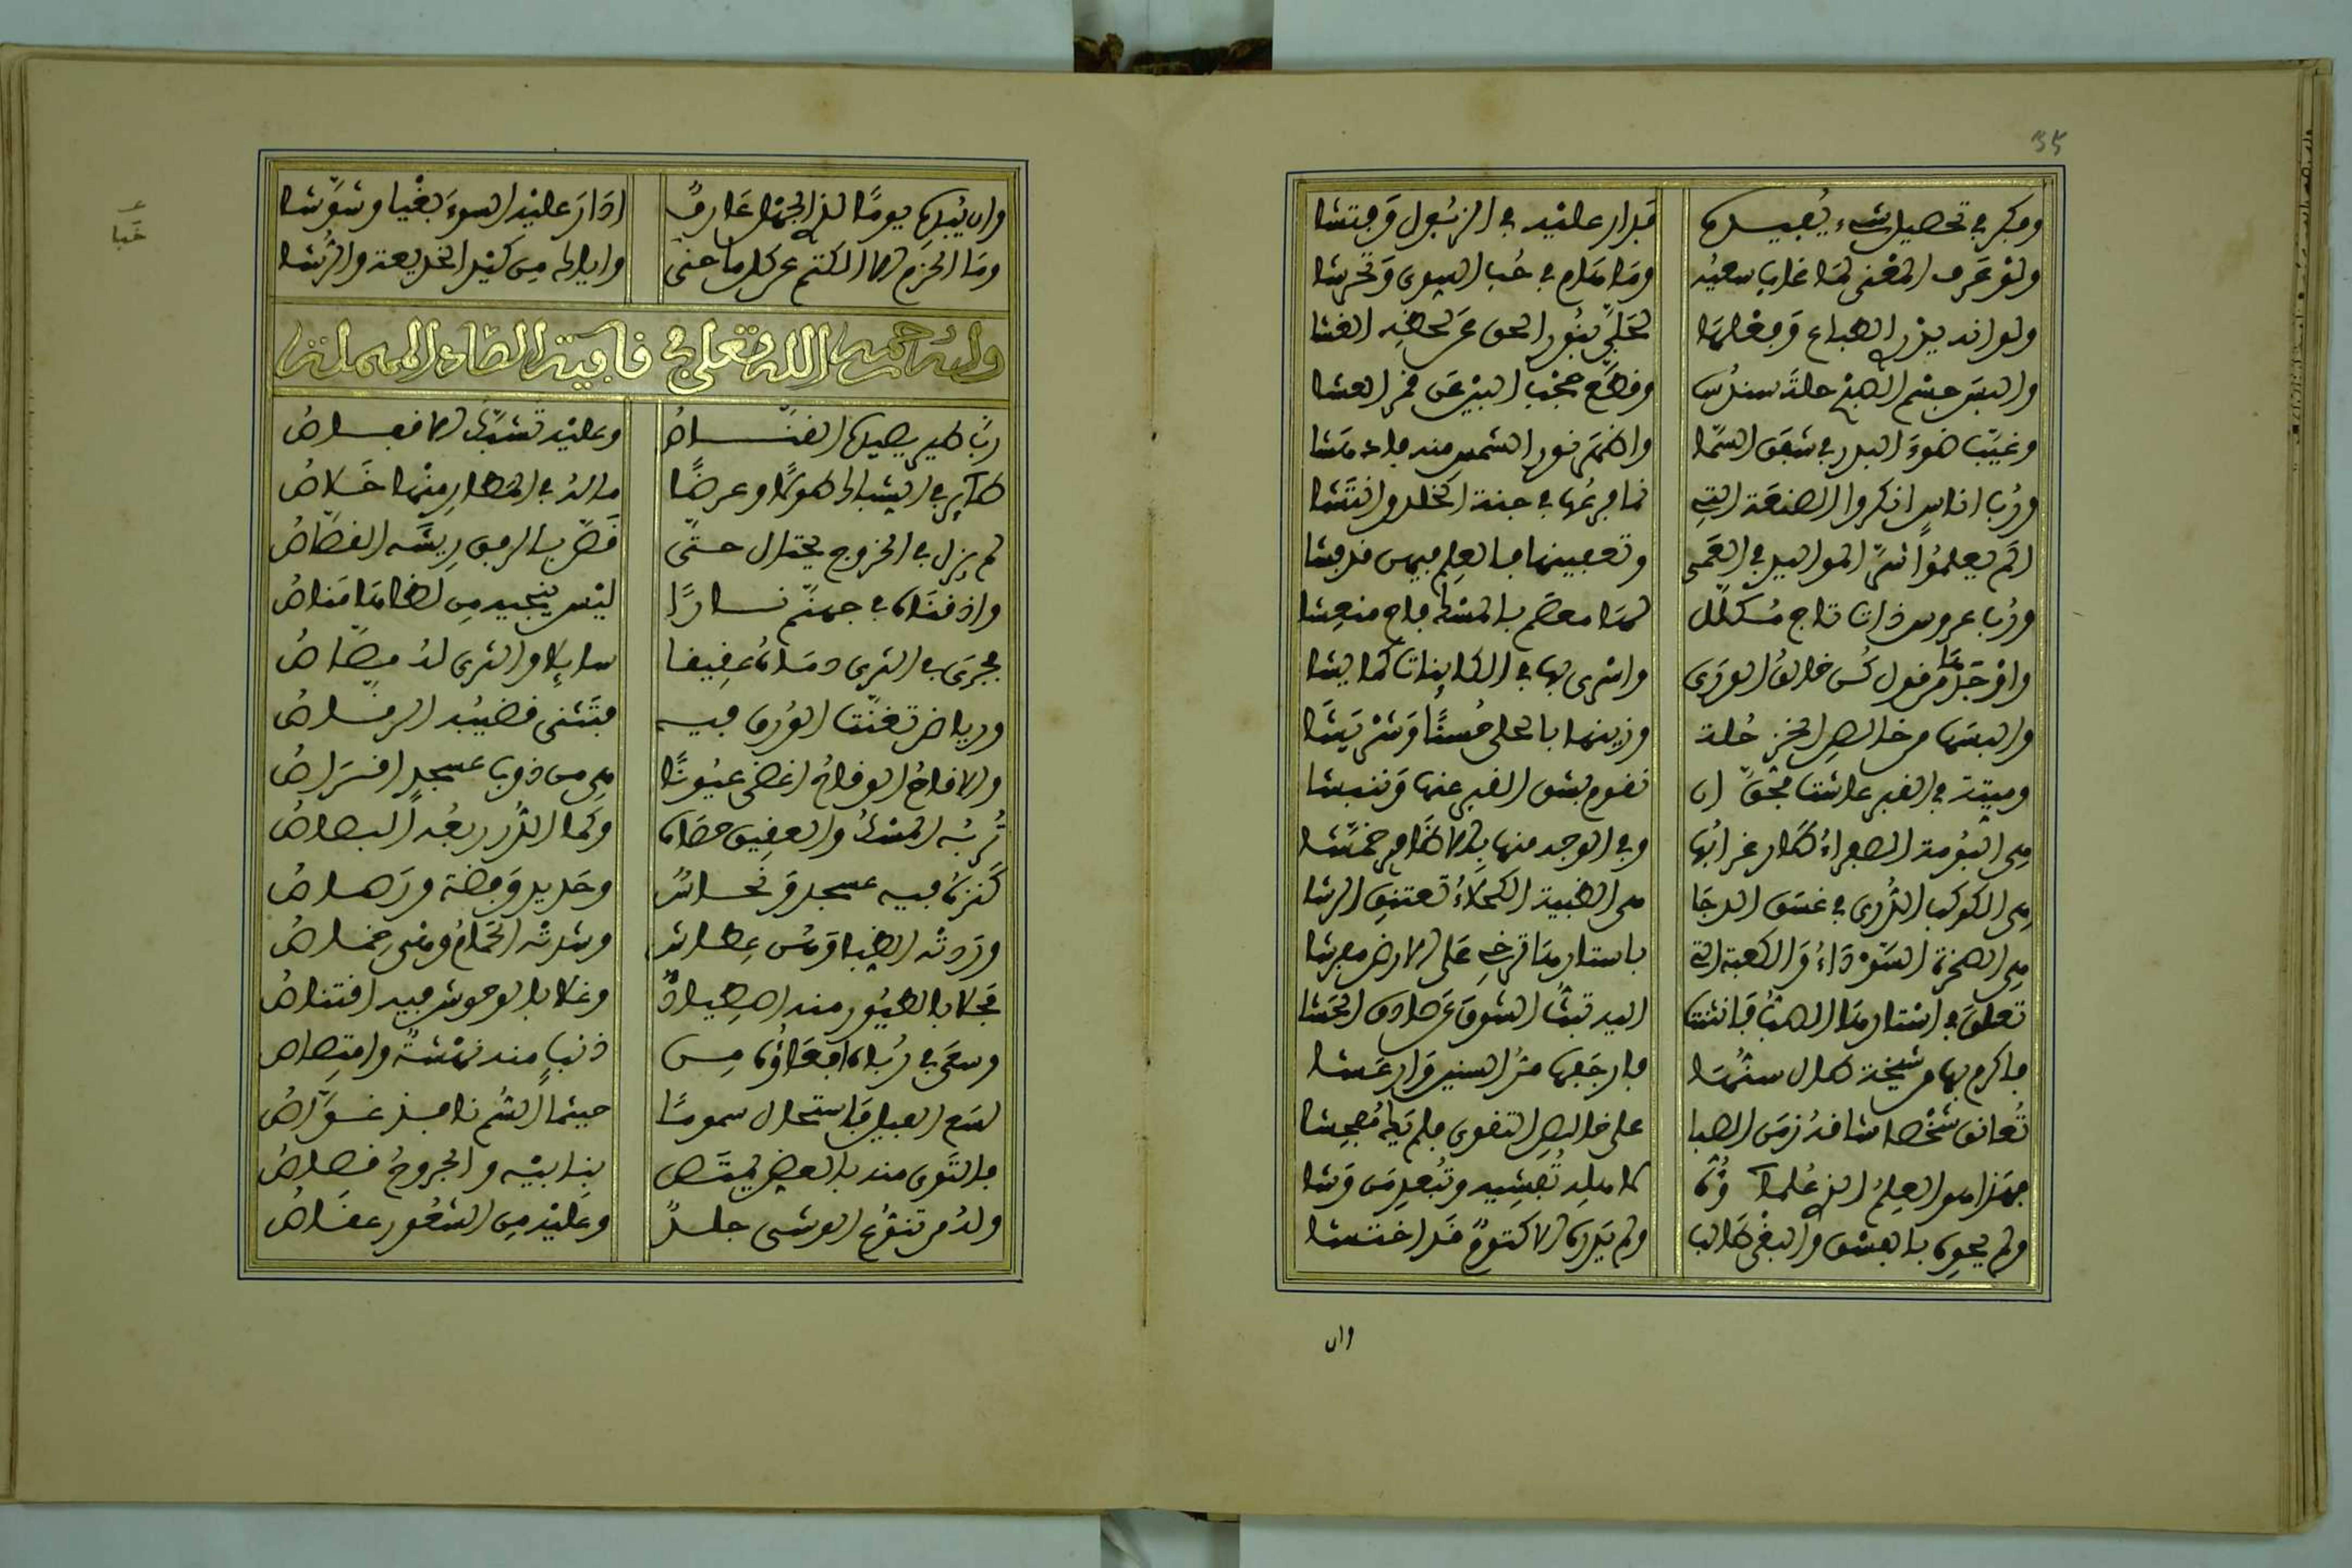 35
وفكر في تحصيل شيء يفيدها فدار عليه في الزبول وفتشا
ولو عرف المعنى لما غاب سعيه وما هام في حب الهوى وتحرشا
ولو انه يدر الطباع وفعلها تجلى بنور الحق عن لحظه الغشا
والبس جسم الصبح حلة سندس وقطع حجب البين عن قمر العشا
وغيب ضوء البدر في شفق السما واظهر نور الشمس منه فادهشا
ورب اناس انكروا الصنعة التي نما فرعها في جنة الخلد وانتشا
الم يعلموا سر المواليد في العمى وتعفينها فالعلم فيهن قد فشا
ورب عروس ذات تاج مكلل لها معصم بالمسك فاح منعشا
واوجدها من قول كن خالق الورى واسرى بها في الكاينات كما يشا
والبسها من خالص الخز حلة وزينها بالحلي حسنا وشربشا
وميتة في القبر عاشت فحق ان نقوم بشق القبر عنها وننبشا
هي البومة الصفراء طار غرابها وفي الوجه منها بالاظافر خمشا
هي الكوكب الدري في غسق الدجا هي الظبية الكحلاء تعتنق الرشا
هي الصخرة السوداء والكعبة التي باستارها ترخى على الارض مفرشا
تعلق في استارها الصب فانثنت اليه تبث الشوق عن صادق الحشا
فاكرم بها من شيخة طال سنها فارجفها مر السنين وارعشا
تعانق شخصا شاقه زمن الصبا على خالص التقوى فلم يك مفحشا
فهذا هو العلم الذي علماؤه لاهله تفشيه وتبعد من وشا
ولم يحوه بالفسق والبغي طالب ولم يدره الا كتوم قد اختشا
وان
وان يبدها يوما لذي الجهل عارف ادار عليه السوء بغيا وشوشا
وما الحزم الا الكتم عن كل ما جنى واياك من كيد الخديعة والرشا
وله رحمه الله تعلى في قافية الصاد المهملة
رب طير يصيدها القناص وعليه تشبك الاقفاص
طآير في الشباك طولا وعرضا ماله في المطار منها خلاص
لم يزل في الخروج يحتال حتى قص بالرفق ريشه القصاص
واذقناه في جهنم نارا ليس ينجيه من لظاها مناص
فجرى في الثرى دماه عقيقا سايلا والثرى له مصاص
ورياض تغنت الورق فيه فتثنى قضيبه الرقاص
والاقاح الوقاح اغضى عيونا هي من ذوب عسجد اقراص
تربه المسك والعقيق حصاه وكما الدر ربعه البصاص
كنزه فيه عسجد ونحاس وحديد وفضة ورصاص
وردته الظبا وهن عطاش وشدته الحمام وهي خماص
فحلا بالطيور منه اصطياد وغلا بالوحوش فيه اقتناص
وسعى في رباه افعاؤه من ذنب منه نهشة وامتصاص
لسع الفيل فاستحال سموما حيثما السم نافذ غواص
فالتوى منه بالعض يمتص بنابيه والجروح قصاص
وله من تنوع الوشى جلد وعليه من الشعور عقاص
خبا